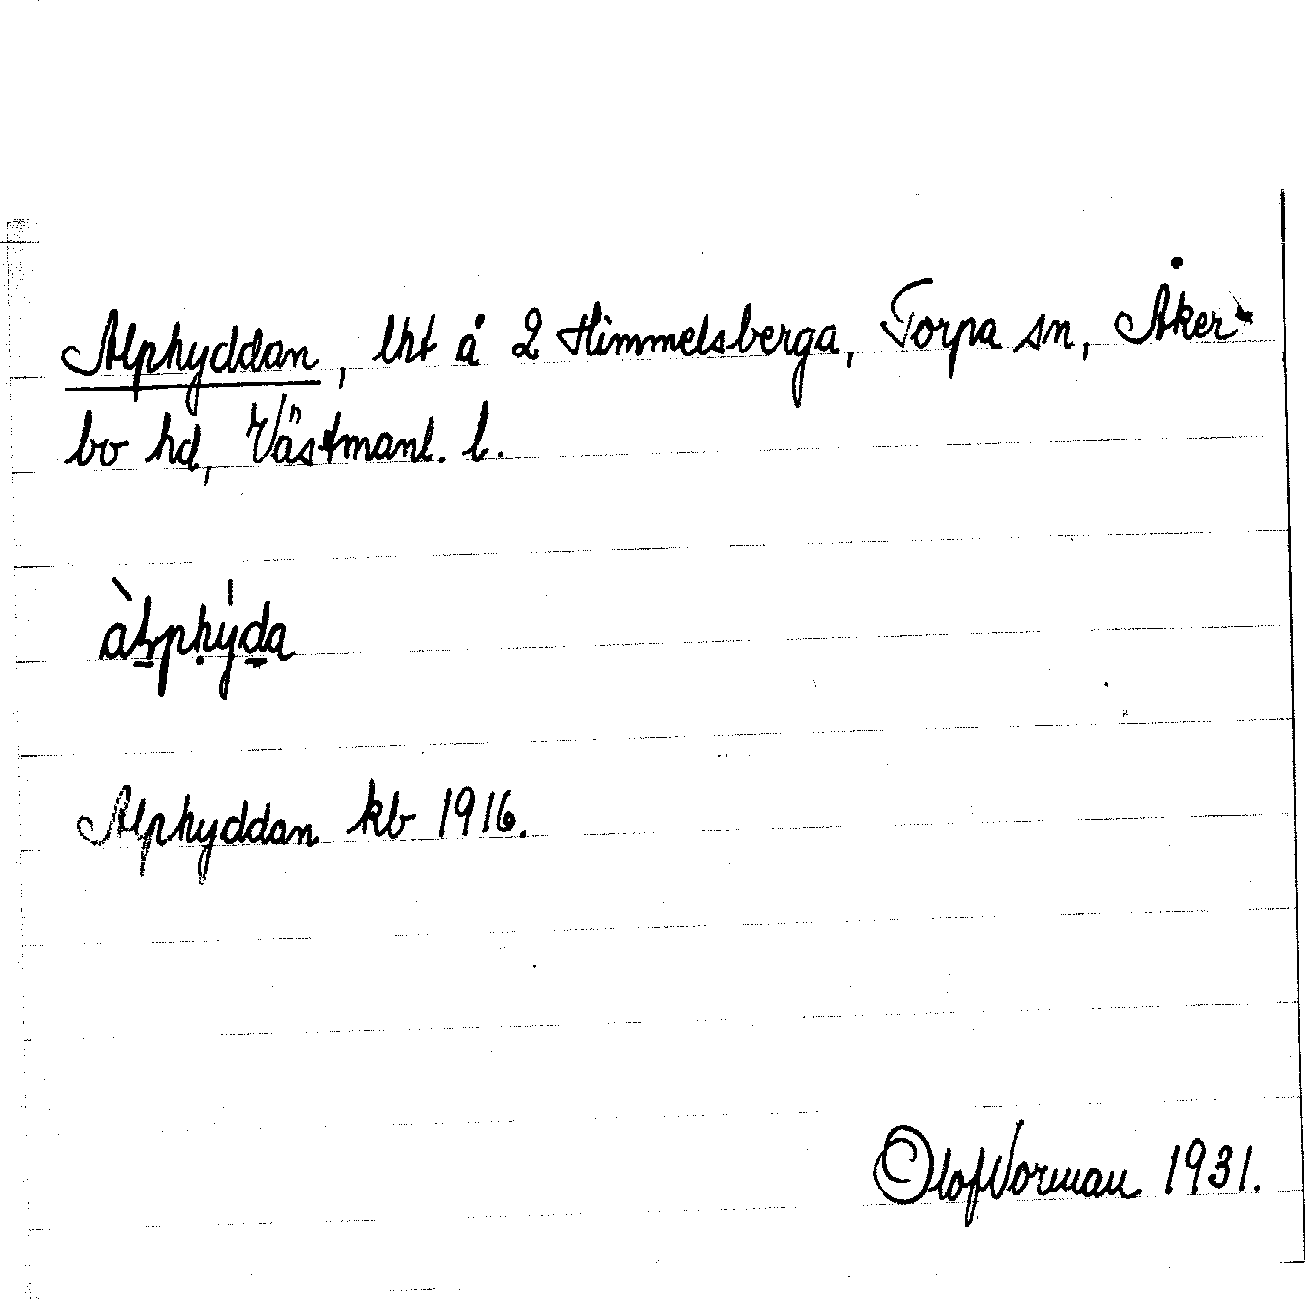 Alphyddan, lht å 2 Himmelsberga, Torpa sn, Åker-
bo hd, Västmanl. l.
Alphyddan kb 1916.
Olof Norman 1931.